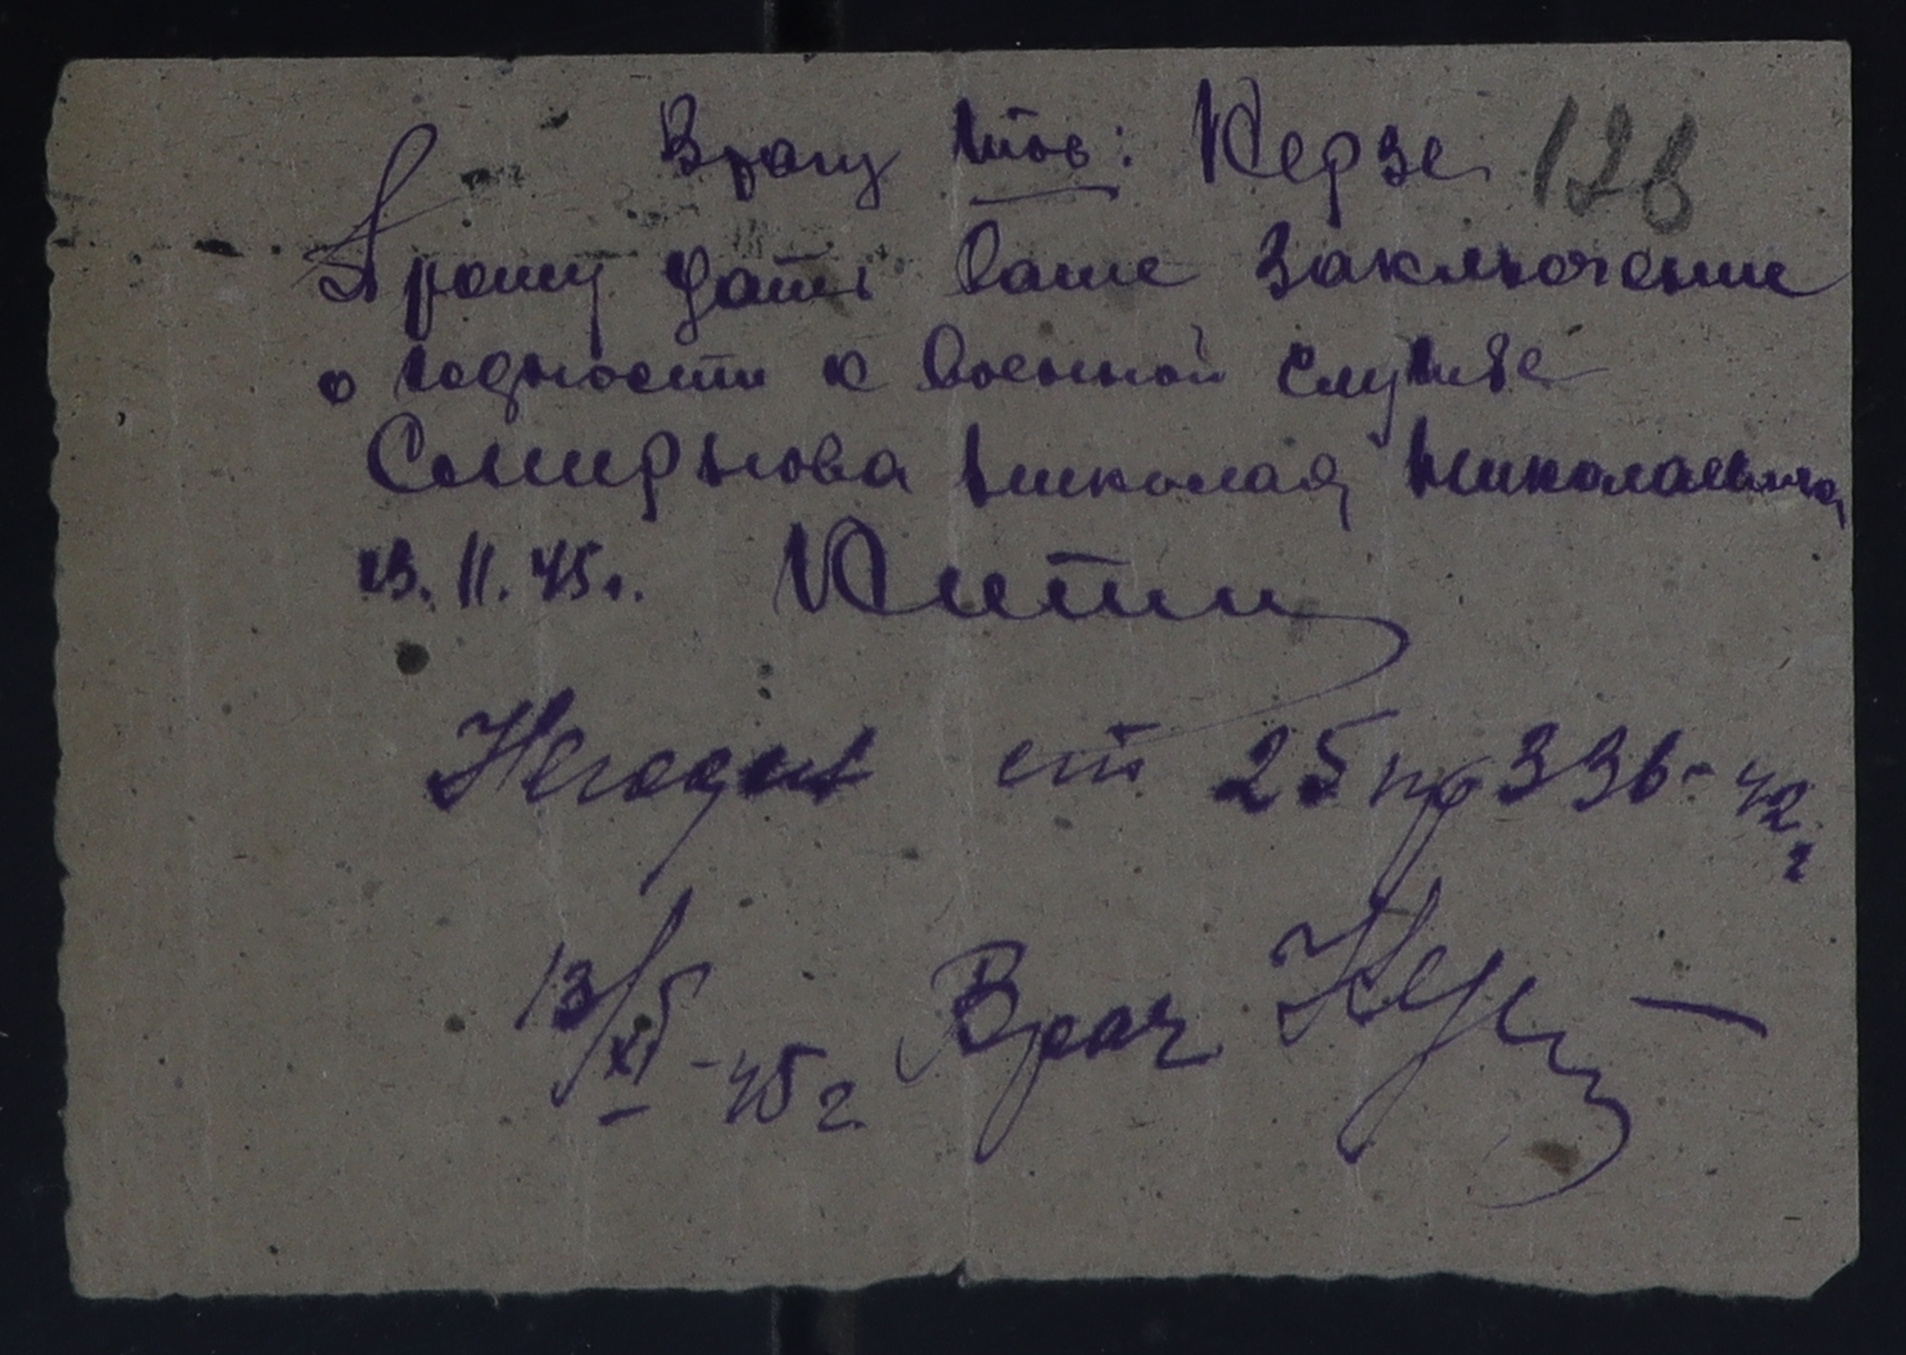 Врачу тов: Керзе 128
Прошу дать Ваше заключение
о годности к военной службе
Смирнова Николая Николаевича
13. 11. 45г. Китин
Негоден ст 25 пр 336-42г
13/XI-45г Врач Кер